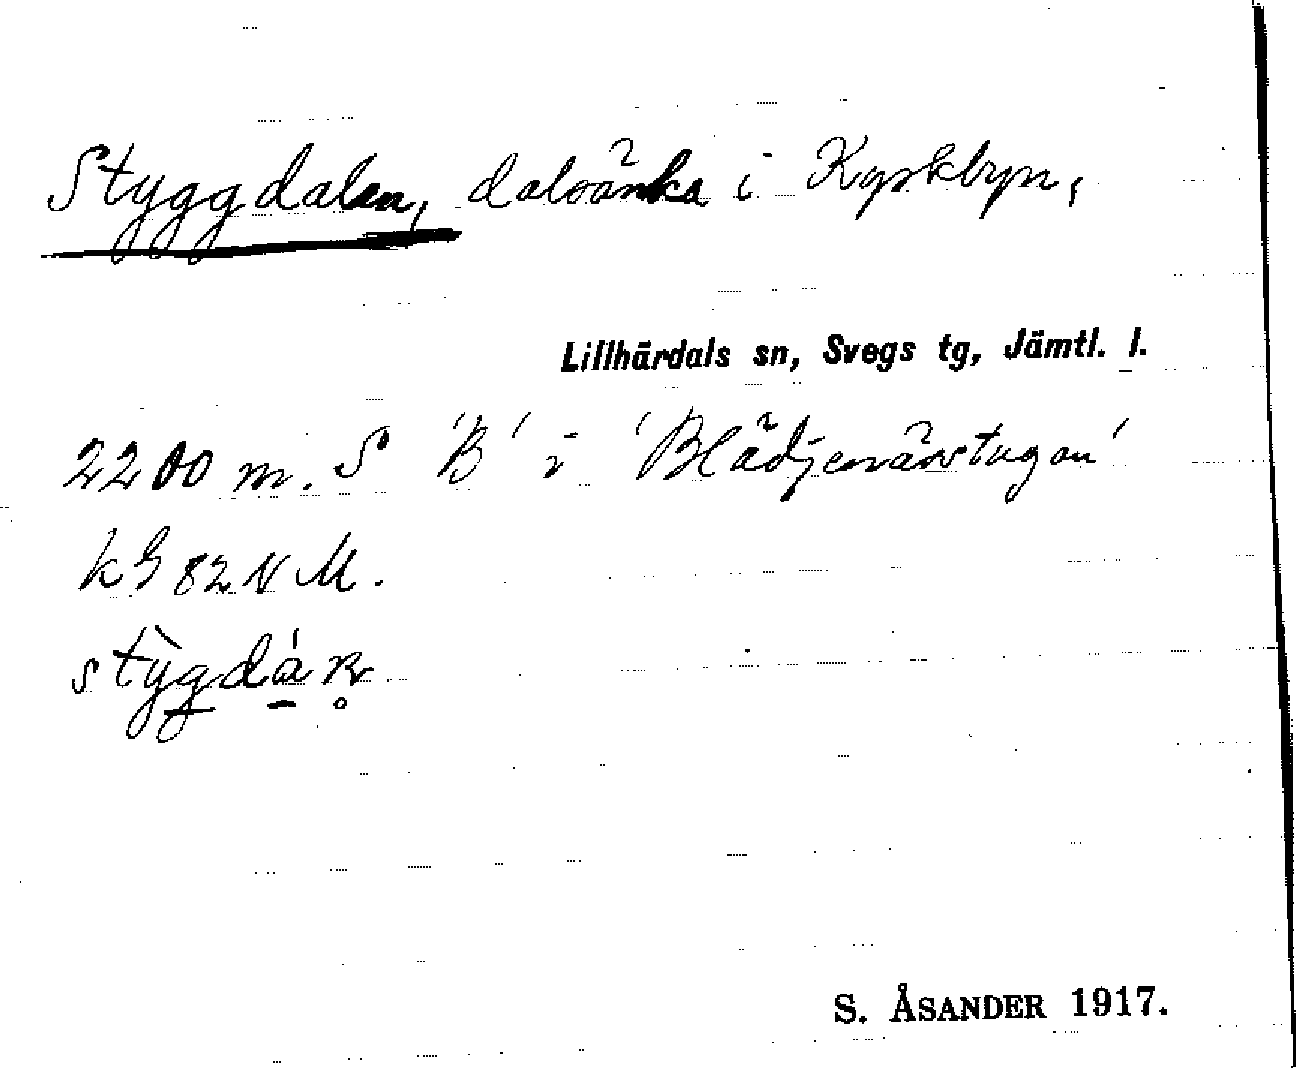 Styggdalen, dalsänka i Kyrkbyn,
Lillhärdals sn, Svegs tg, Jämtl. l.
2200 m. S 'B' i 'Blädjenässtugan'
kG 82 N M.
S. ÅSANDER 1917.